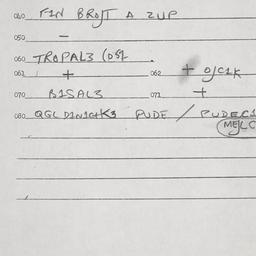 040 FIN BROJT A 2UP
050 -
060 TROPAL3 (051.
061 + 062 + 0JC1K
070 BISAL3 071 +
080 QGL D1N1CHK3 PUDE / PUDEC1
MEJLC